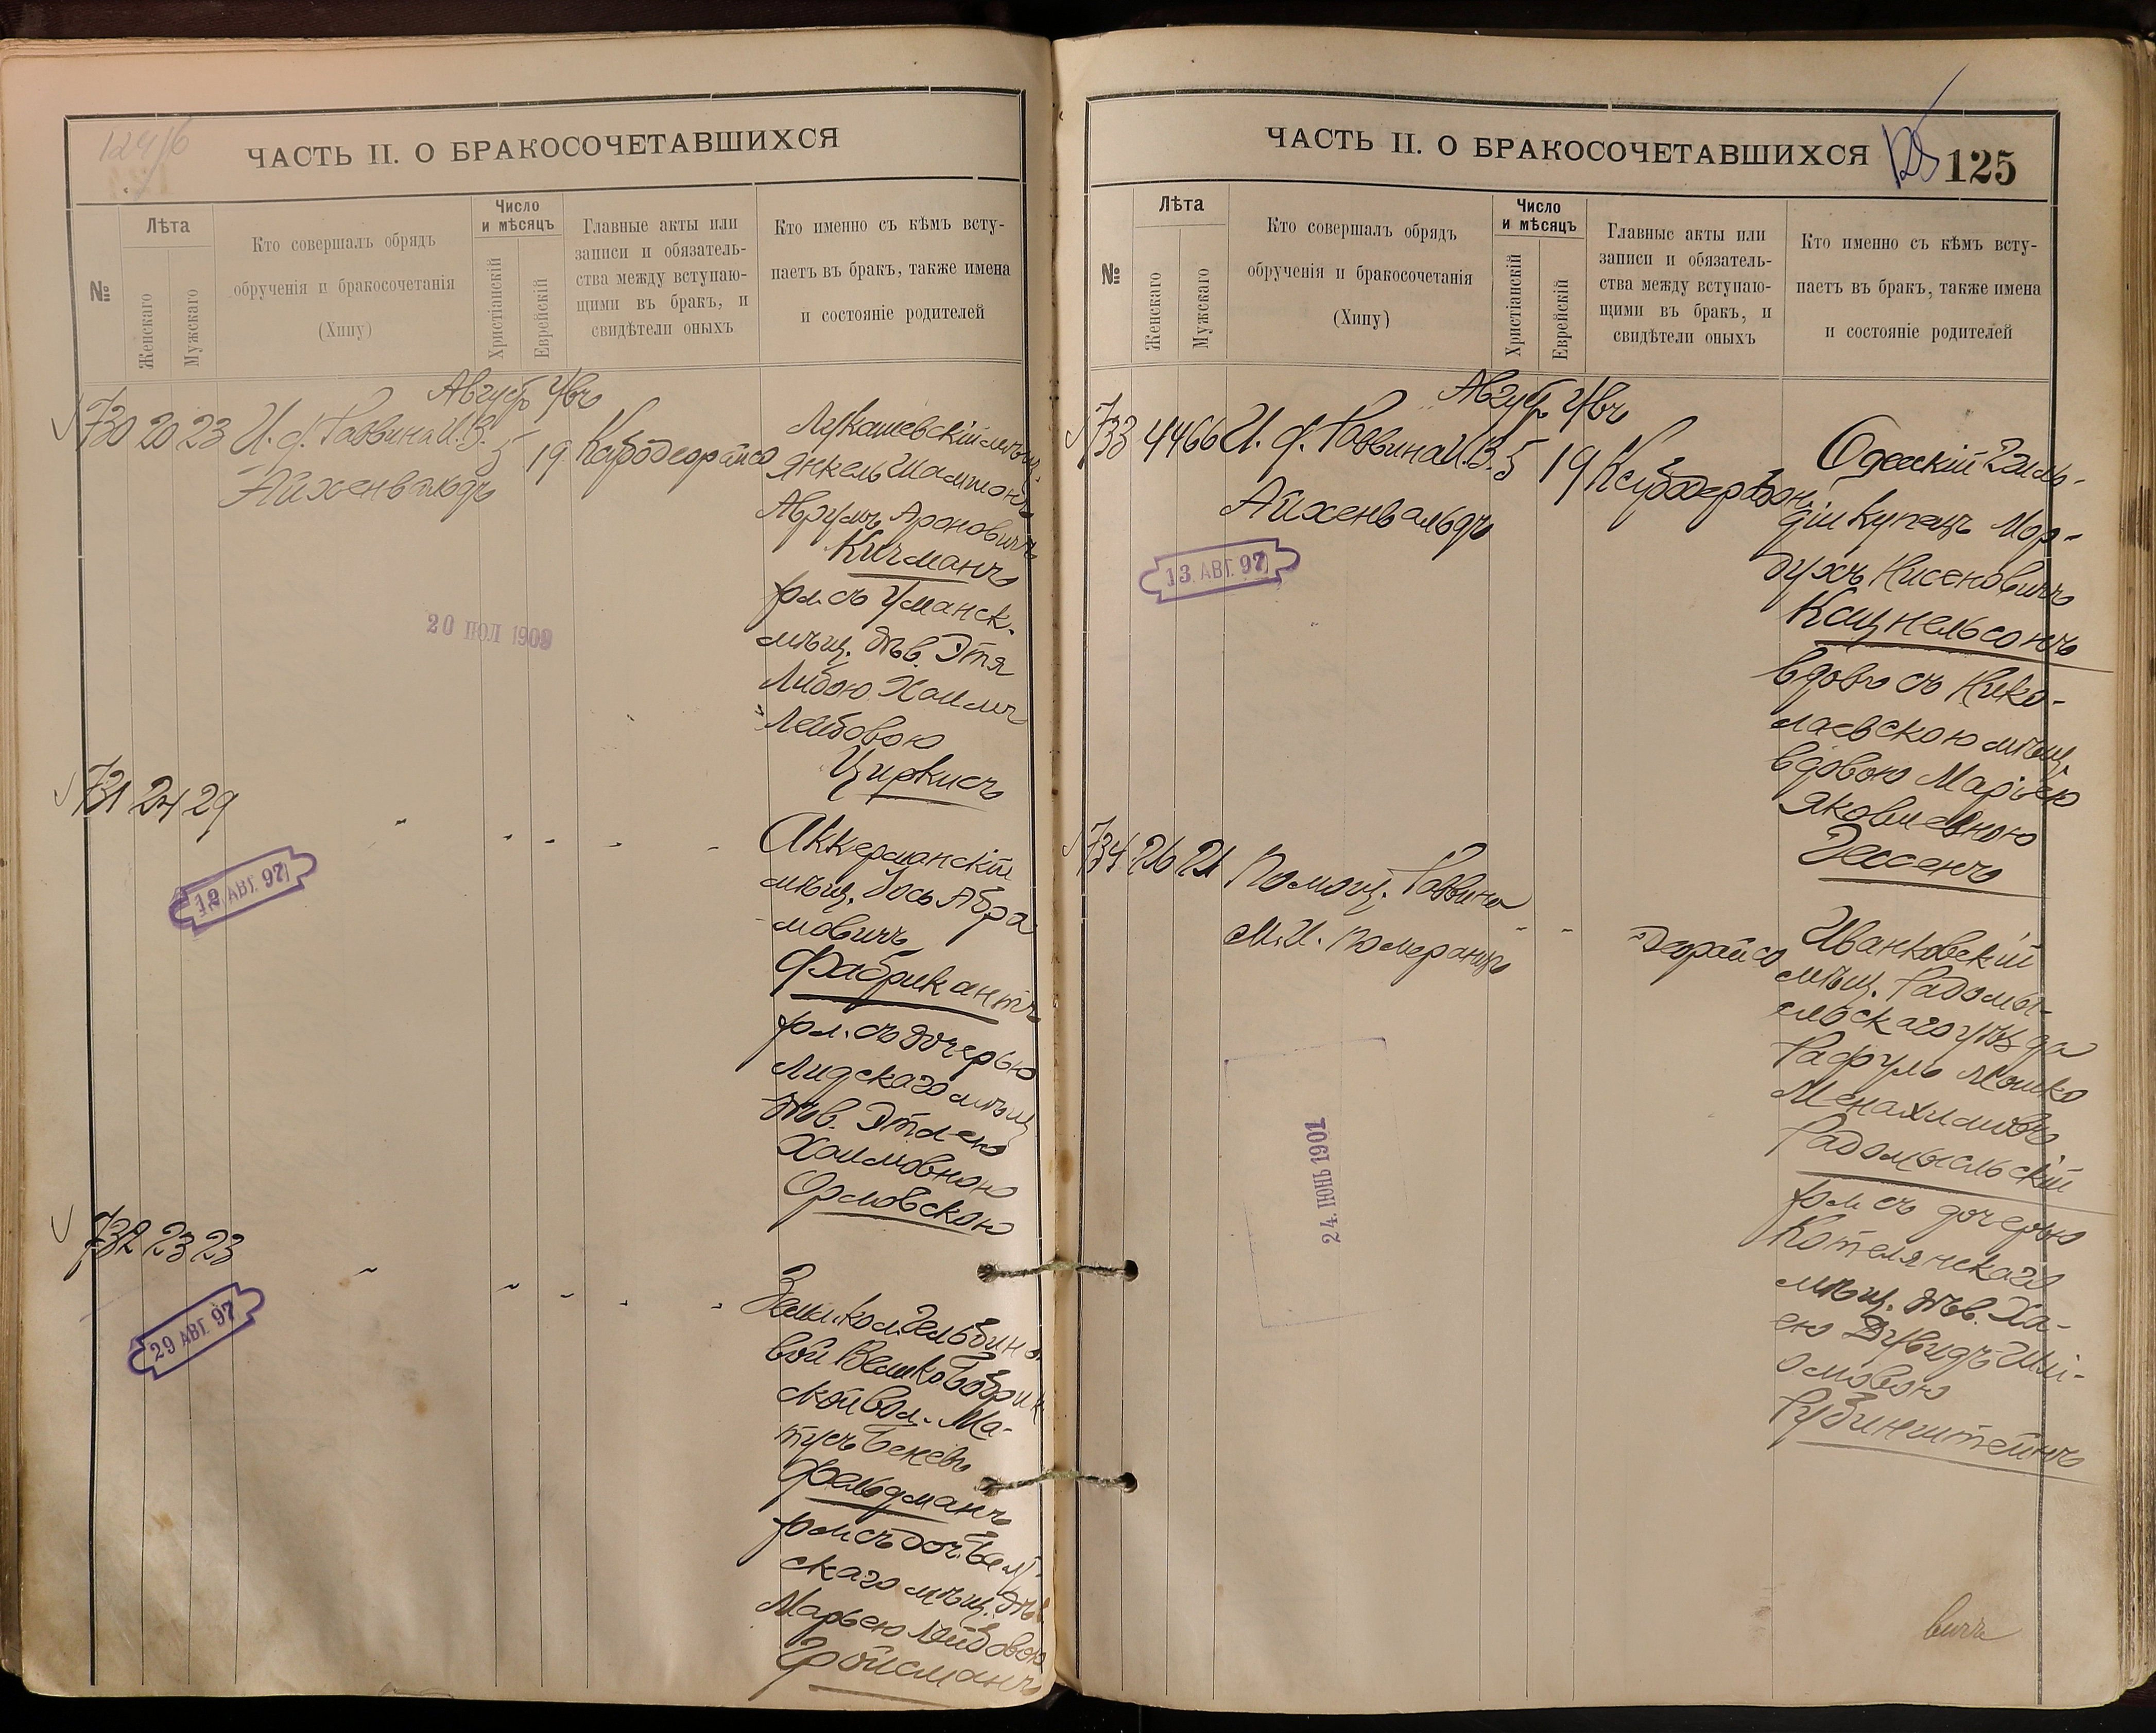 124/б
ЧАСТЬ II. О БРАКОСОЧЕТАВШИХСЯ
№
Лѣта
Женскаго
Мужскаго
Кто совершалъ обрядъ
обрученія и бракосочетанія
(Хипу)
Число
и мѣсяцъ
Христіанскій
Еврейскій
Главные акты или
записи и обязатель-
ства между вступаю-
щими въ бракъ, и
свидѣтели оныхъ
Кто именно съ кѣмъ всту-
паетъ въ бракъ, также имена
и состояніе родителей
Август
730 20 23 И. д. Раввина И. В. 5 19
Айхенвальдъ
20 ІЮЛ 1909
Лукашевскій мѣщ.
Янкель Шамшонъ
Аврумъ Ароновичъ
Кичманъ
хол. съ Уманск.
мѣщ. дѣв. Этя
Либою Хаимъ
Лейбовою
Циркисъ
731 24 29 " " " " "
12 АВГ. 97
Аккерманскій
мѣщ. Іось Абра
мовичъ
Фабрикантъ
хол. съ дочерью
Лидскаго мѣщ
дѣв. Этлею
Хаимовною
Орловскою
732 23 23 " " " " "
29 АВГ. 97
Зем. кол.
вой
ской вол. Ма-
тусъ Беневъ
Фельдманъ
хол. съ доч.
скаго мѣщ. дѣв.
Марьею Лейбовою
Гройсманъ
ЧАСТЬ II. О БРАКОСОЧЕТАВШИХСЯ
125
125
№
Лѣта
Женскаго
Мужскаго
Кто совершалъ обрядъ
обрученія и бракосочетанія
(Хипу)
Число
и мѣсяцъ
Христіанскій
Еврейскій
Главные акты или
записи и обязатель-
ства между вступаю-
щими въ бракъ, и
свидѣтели оныхъ
Кто именно съ кѣмъ всту-
паетъ въ бракъ, также имена
и состояніе родителей
Август
733 44 66 И. д. Раввина И. В. 5 19
Айхенвальдъ
13. АВГ. 97
Одесскій 2 гиль-
діи купецъ Мор-
духъ Нисеновичъ
Кацнельсонъ
вдовъ съ Нико-
лаевскою мѣщ.
вдовою Марьею
Яковлевною
Гессенъ
734 26 21 Помощ. Раввина " "
М. И. Померанцъ
24. ІЮНЬ 1901
Иванковскій
мѣщ. Радомы-
сльскаго уѣзда
Рафуль Мошко
Менахимовъ
Радомысльскій
хол. съ дочерью
Котелянскаго
мѣщ. дѣв. Ха-
ею Дувидъ Шлі-
омовою
Рубинштейнъ